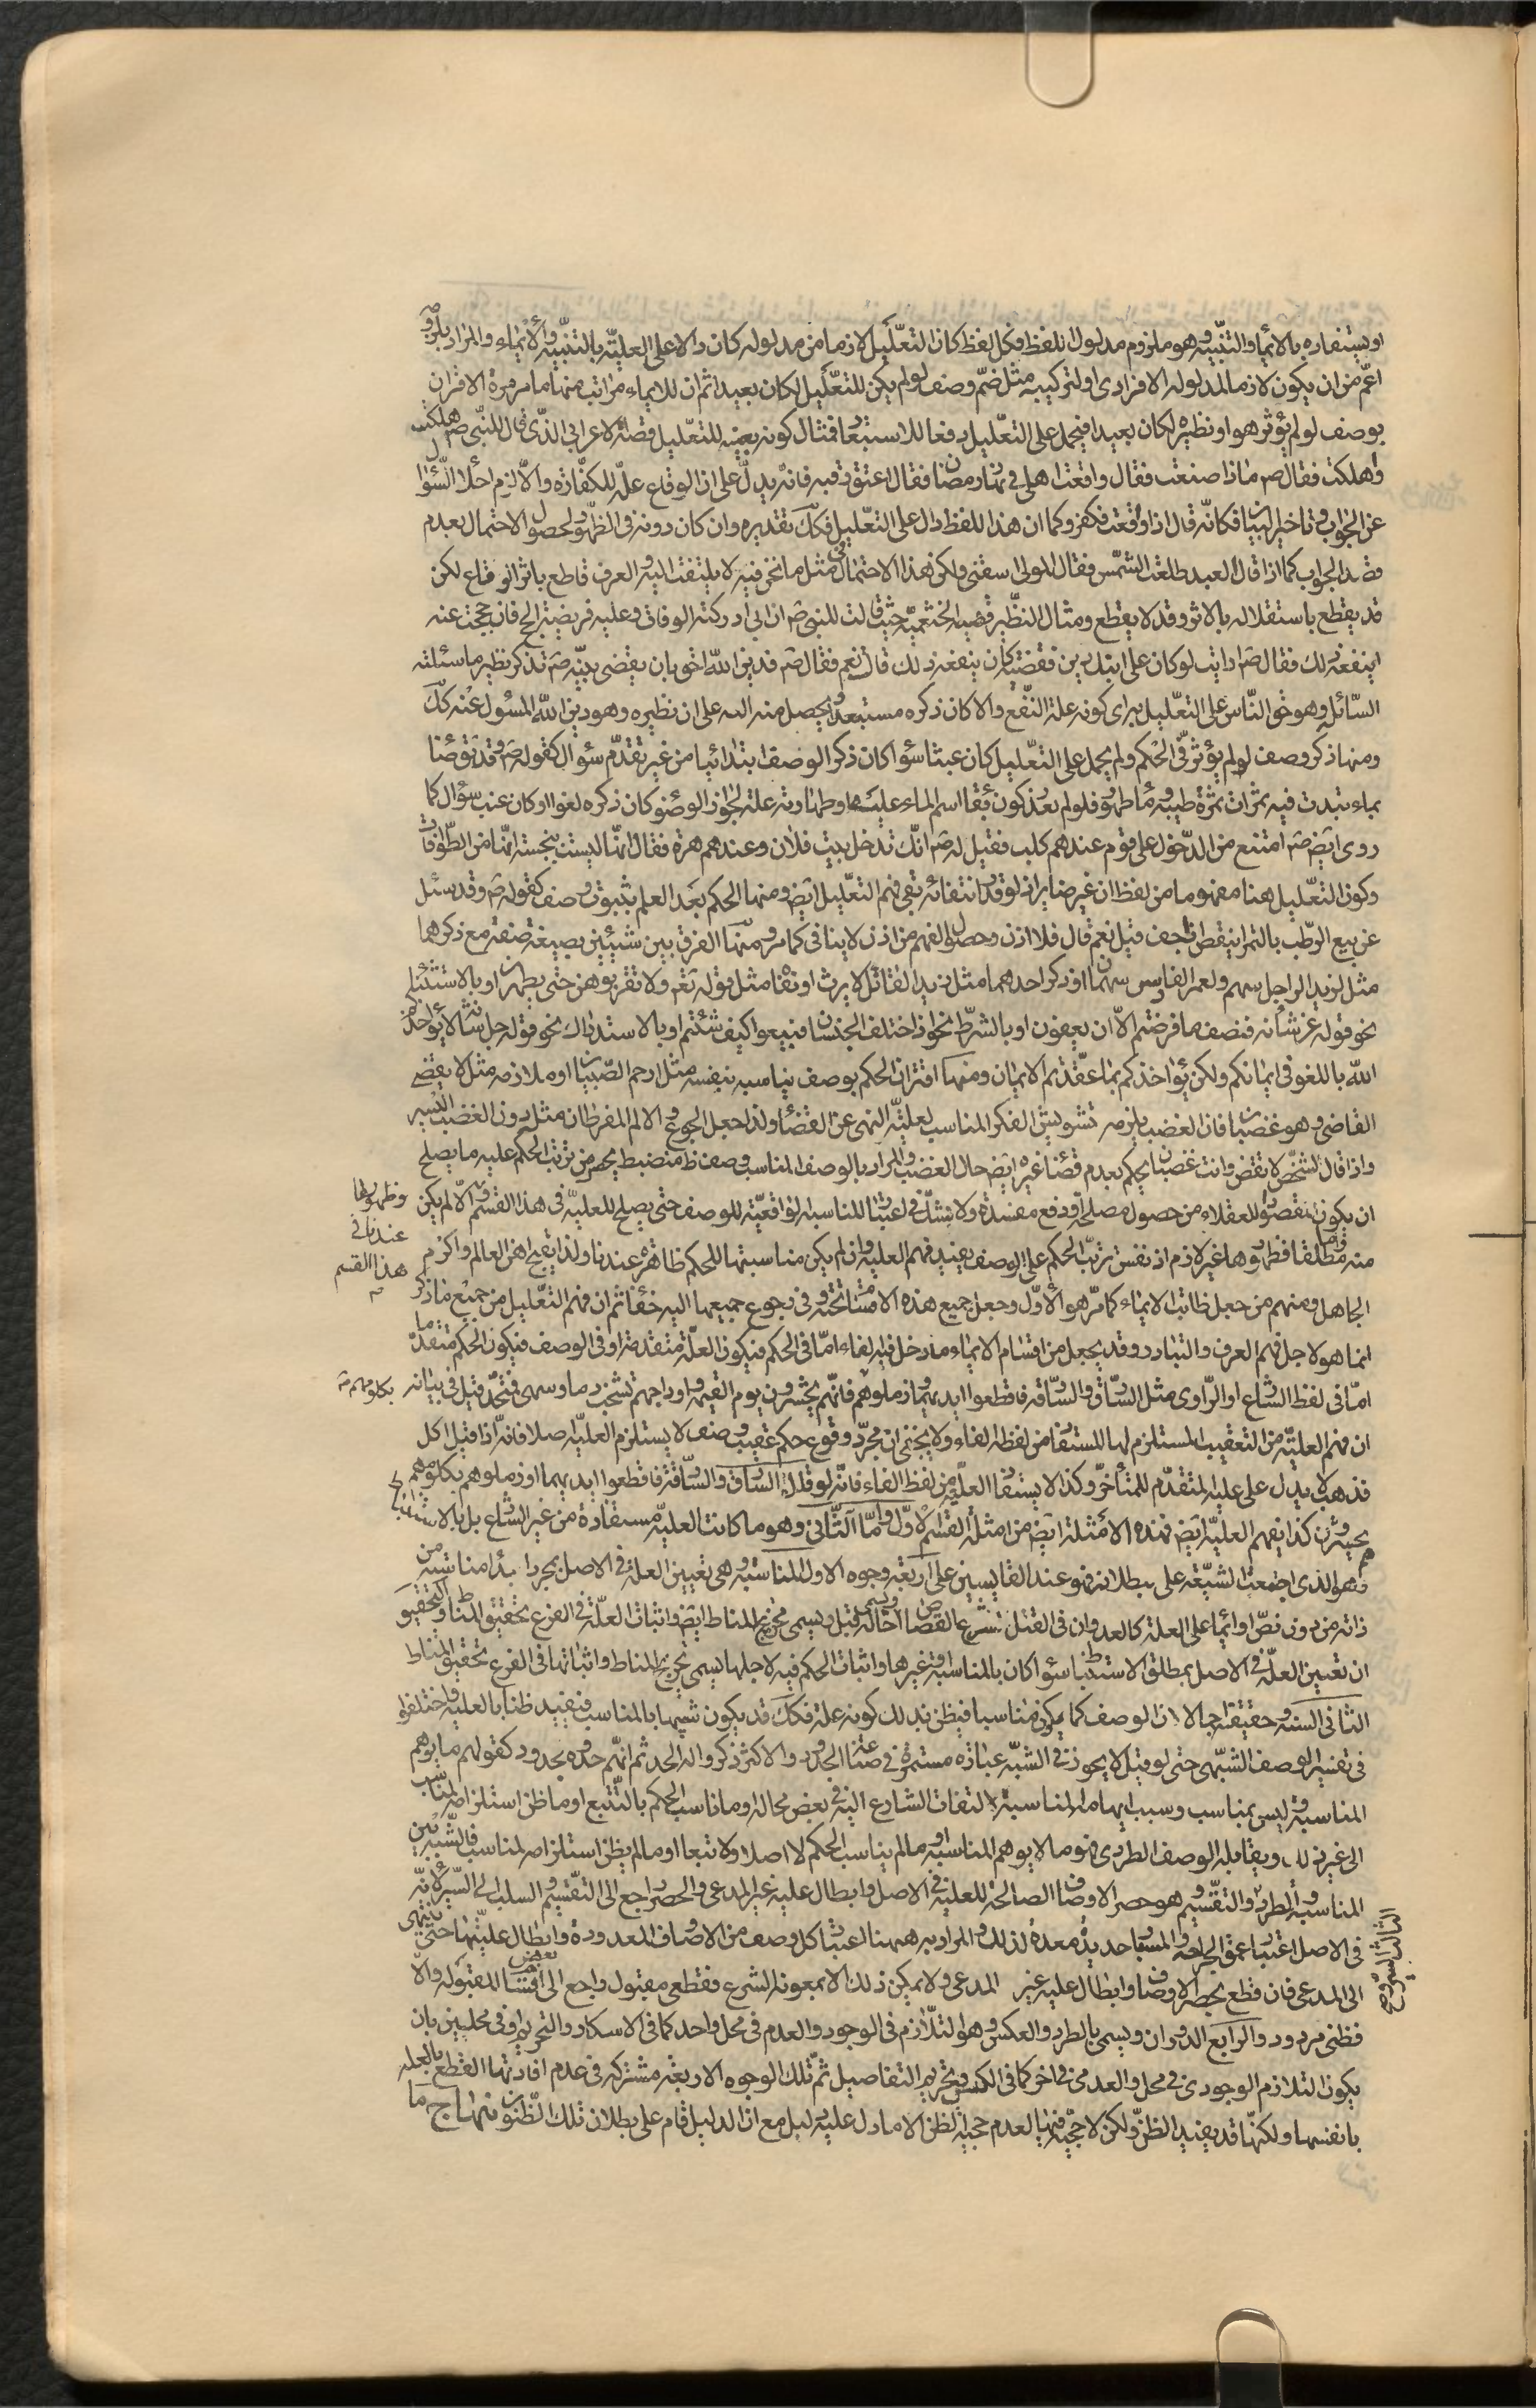 او يستفاد بالايماء والتنبيه وهو ملزوم مدلول اللفظ فكل لفظ كان التعليل لازما من مدلوله كان دالا على العلية بالتنبيه والايماء والمراد بلزومه
اعم من ان يكون لازما لمدلوله الافرادى او لتركيبه مثل ضم وصف لو لم يكن للتعليل لكان بعيدا ثم ان للايماء مراتب منها ما مر مرة الاقتران
بوصف لو لم يؤثر هو او نظيره لكان بعيدا فيحمل على التعليل دفعا للاستبعاد فمثال كونه بعينه للتعليل قصة الاعرابى الذى قال للنبى ص هلكت
واهلكت فقال ص ماذا صنعت فقال واقعت اهلى فى نهار رمضان فقال اعتق رقبه فانه يدل على ان الوقاع علة للكفارة والا لزم اخلاء السؤال
عن الجواب وتاخير البيان فكانه قال اذا واقعت فكفر وكما ان هذا اللفظ دال على التعليل فكك تقديره وان كان دونه فى الظهور لحصول الاحتمال بعدم
قصد الجواب كما اذا قال العبد طلعت الشمس فقال المولى اسقنى ولكن هذا الاحتمال فى مثل ما نحن فيه لا يلتفت اليه والعرف قاطع باثر الوقاع لكن
قد يقطع باستقلاله بالاثر وقد لا يقطع ومثال النظير قضية الخثعمية حيث قالت للنبى ص ان ابى ادركته الوفات وعليه فريضة الحج فان حججت عنه
اينفعه ذلك فقال ص ارايت لو كان على ابيك دين فقضيته كان ينفعه ذلك قالت نعم فقال ص فدين الله احق بان يقضى بنبه ص تذكر نظير ما سئلته
السائل وهو حق الناس على التعليل به اى كونه علة النفع والا كان ذكره مستبعدا ويحصل منه التنبيه على ان نظيره وهو دين الله المسؤل عنه كك
ومنها ذكر وصف لو لم يؤثر فى الحكم ولم يحمل على التعليل كان عبثا سؤا كان ذكر الوصف ابتدائيا من غير تقدم سؤال كقوله ص وقد توضأ
بماء نبذت فيه تمرات تمرة طيبة وماء طهور فلو لم يعد كون بقاء اسم الماء عليها وطهارته علة لجواز الوضوء كان ذكره لغوا او كان عند سؤال كما
روى ايض ص امتنع من الدخول على قوم عندهم كلب فقيل له ص انك تدخل بيت فلان وعندهم هرة فقال انها ليست بنجسة انها من الطوافات
وكون التعليل هنا مفهوما من لفظ ان غير ضاير اذ لو قدر انتفائه بقى فهم التعليل ايض ومنها الحكم بعد العلم بثبوت وصف كقوله ص وقد سئل
عن بيع الرطب بالتمر اينقص اذا جف قيل نعم قال فلا اذن وحصول الفهم من اذن لا ينافى كما مر ومنها الفرق بين شيئين بصيغة صفة مع ذكرهما
مثل لزيد الراجل سهم ولعمر الفارس سهمان او ذكر احدهما مثل زيد القاتل لا يرث او بغيرها مثل قوله تع ولا تقربوهن حتى يطهرن او بالاستثناء
نحو قوله عز شأنه فنصف ما فرضتم الا ان يعفون او بالشرط نحو اذا اختلف الجنسان فبيعوا كيف شئتم او بالاستدراك نحو قوله جل شانه لا يؤاخذكم
الله باللغو فى ايمانكم ولكن يؤاخذكم بما عقدتم الايمان ومنها اقتران الحكم بوصف يناسبه بنفسه مثل ارحم الصبيان او ملازمه مثل لا يقضى
القاضى وهو غضبان فان الغضب يلزمه تشويش الفكر المناسب لعلية النهى عن القضاء ولذا جعل الجوع والالم المفرطان مثله دون الغضب اليسير
واذا قال لشخص لا تقض وانت غضبان يحكم بعدم قضاء غيره ايض حال الغضب والمراد بالوصف المناسب وصف ظ منضبط يحصل من ترتب الحكم عليه ما يصلح
ان يكون مقصودا للعقلاء من حصول مصلحة او دفع مفسدة ولا يشك فى اعتبار المناسبة الواقعية للوصف حتى يصلح للعلية فى هذا القسم والا لم يكن
وظهورها عندنا فى هذا القسم
منه واما مطلقا فظهورها غير لازم اذ نفس ترتب الحكم على الوصف يفيد فهم العلية وان لم يكن مناسبتها للحكم ظاهرة عندنا ولذا يقبح اهن العالم واكرم
الجاهل ومنهم من جعل ضابطة الايماء كما مر هو الاول وجعل جميع هذه الامثلة تحته وفى رجوع جميعها اليه خفاء ثم ان فهم التعليل من جميع ما ذكر
انما هو لاجل فهم العرف والتبادر وقد يجعل من اقسام الايماء ما دخل فيه الفاء اما فى الحكم فيكون العلة متقدمة او فى الوصف فيكون الحكم متقدما
اما فى لفظ الشارع او الراوى مثل السارق والسارقة فاقطعوا ايديهما وزملوهم بكلومهم فانهم يحشرون يوم القيمة واوداجهم تشخب دما وسهى فسجد قيل فى بيانه
ان فهم العلية من التعقيب المستلزم لها المستفاد من لفظة الفاء ولا يخفى ان مجرد وقوع حكم عقيب وصف لا يستلزم العلية اصلا فانه اذا قيل اكل
فذهب لا يدل على علية المتقدم للمتأخر وكذا لا يستفاد العلية من لفظ الفاء فانه لو قال السارق والسارقة فاقطعوا ايديهما او زملوهم بكلومهم
يحشرون كذا يفهم العلية ايض فهذه الامثلة ايض من امثلة القسم الاول واما الثانى وهو ما كانت العلية مستفادة من غير الشارع بل بالاستنباط
وهو الذى اجتمعت الشيعة على بطلانه فهو عند القايسين على اربعة وجوه الاول المناسبة وهى تعيين العلة فى الاصل بمجرد ابداء مناسبة من
ذاته من دون نص او ايماء على العلة كالعدوان فى القتل لشرع القصاص ويسمى اخالة قيل ويسمى تخريج المناط ايض واثبات العلة فى الفرع تحقيق المناط والتحقيق
ان تعيين العلة فى الاصل بمطلق الاستنباط سؤا كان بالمناسبة او غيرها واثبات الحكم فيه لاجلها يسمى تخريج المناط واثباتها فى الفرع تحقيق المناط
الثانى الشبه وحقيقته اجمالا ان الوصف كما يكون مناسبا فيظن بذلك كونه علة فكك قد يكون شبيها بالمناسب فيفيد ظنا بالعلية واختلفوا
فى تفسير الوصف الشبهى حتى لو قيل لا يجوز فى الشبه عبارة مستمرة فى صناعة الحدود والاكثر ذكروا له الحد ثم انهم حدوه بحدود كقولهم ما يوهم
المناسبة وليس بمناسب وسبب ايهامه المناسبة التفات الشارع اليه فى بعض محاله او ما ناسب الحكم بالتتبع او ما ظن استلزامه لمناسب
الى غير ذلك ويقابله الوصف الطردى فهو ما لا يوهم المناسبة او ما لم يناسب الحكم لا اصلا ولا تبعا او ما لم يظن استلزامه لمناسب فالشبه بين
المناسب والطرد
الثالث السبر
والتقسيم وهو حصر الاوصاف الصالحة للعلية فى الاصل وابطال علية غير المدعى والحصر راجع الى التقسيم والسلب الى السبر لانه
فى الاصل اعتبار عمق الجراحة والمسبار حديدة معدة لذلك والمراد به ههنا اعتبار كل وصف من الاوصاف المعدودة وابطال عليتها حتى ينتهى
الى المدعى فان قطع بحصر الاوصاف وابطال علية غير المدعى ولا يمكن ذلك الا بمعونة الشرع فقطعى مقبول راجع الى بعض اقسام المقبوله والا
فظنى مردود والرابع الدوران ويسمى بالطرد والعكس وهو التلازم فى الوجود والعدم فى محل واحد كما فى الاسكار والتحريم او فى محلين بان
يكون التلازم الوجودى فى محل والعدمى فى اخر كما فى الكيس وتحريم التفاصيل ثم تلك الوجوه الاربعة مشتركة فى عدم افادتها القطع بالعلة
بانفسها ولكنها قد يفيد الظن ولكن لا حجية فيها لعدم حجية الظن الا ما دل عليه دليل مع ان الدليل قام على بطلان تلك الظنون منهاج ما